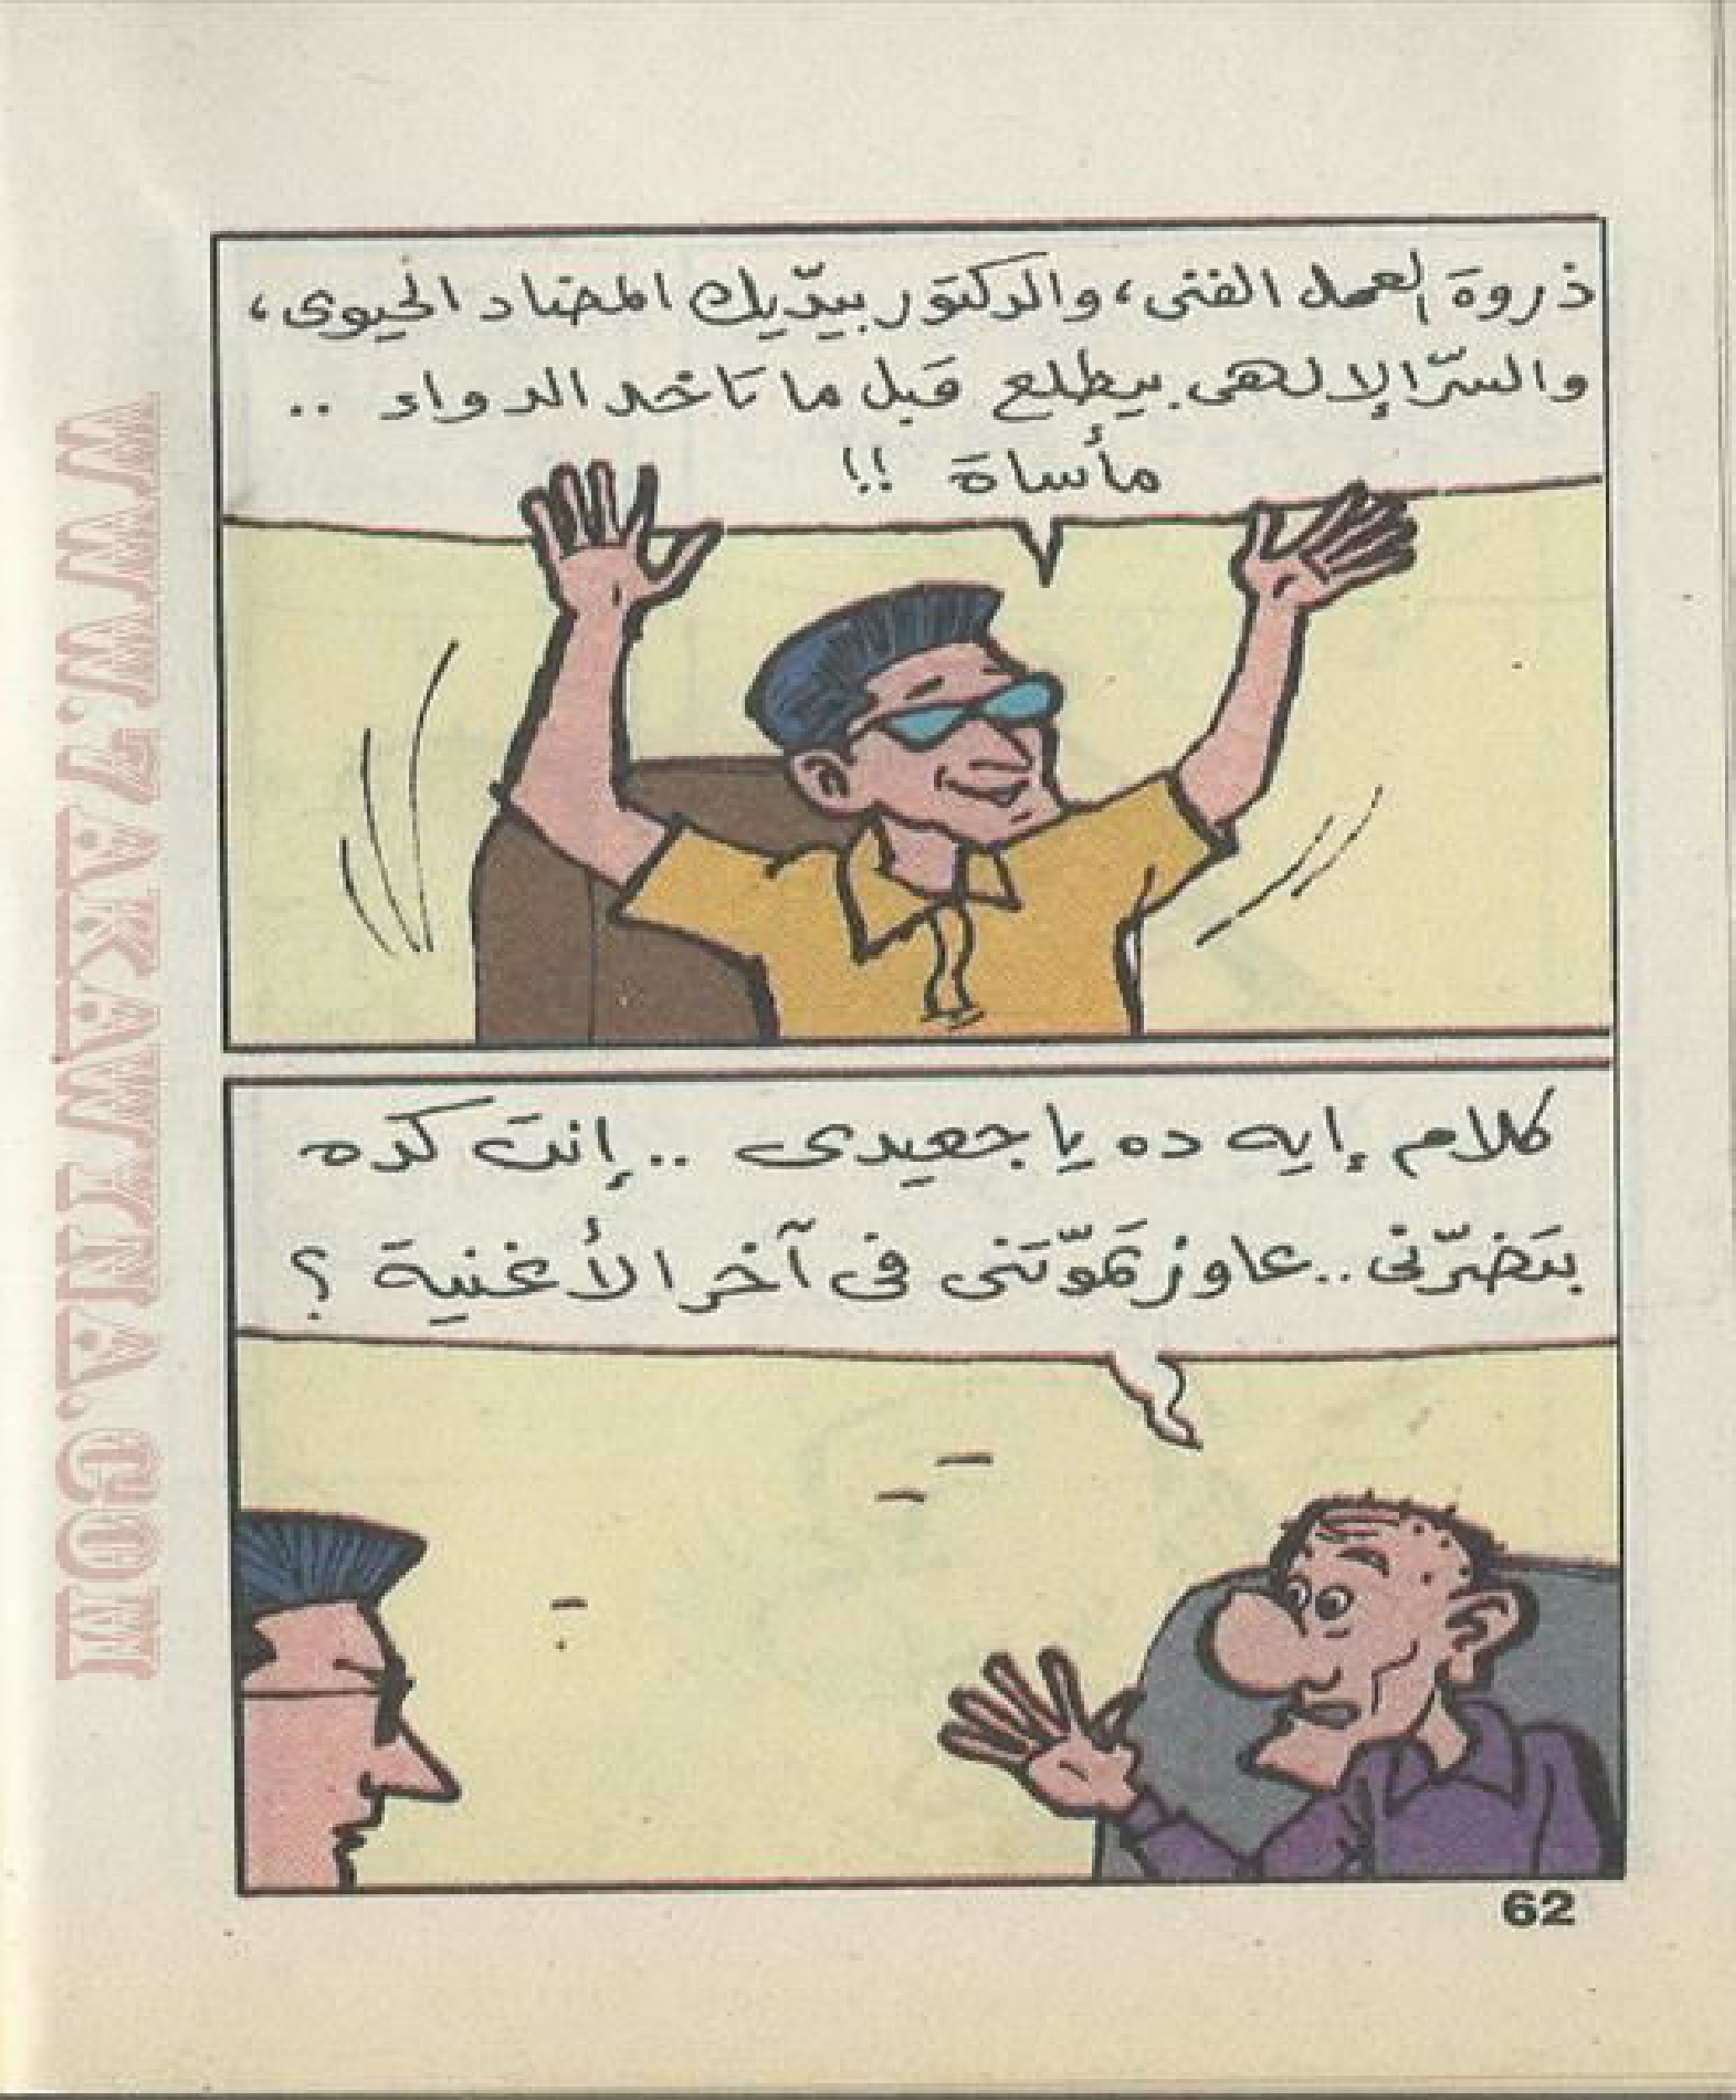 ذروة العمل الفنى، والدكتور بيدّيك المضاد الحيوى،
والسرّ الإلهى بيطلع قبل ما تاخد الدواء ..
مأساة !!
كلام إيه ده يا جعيدى .. إنت كده
بتضرّنى .. عاوز تموّتنى فى آخر الأغنية ؟
62
WWW.7AKAWTNA.COM